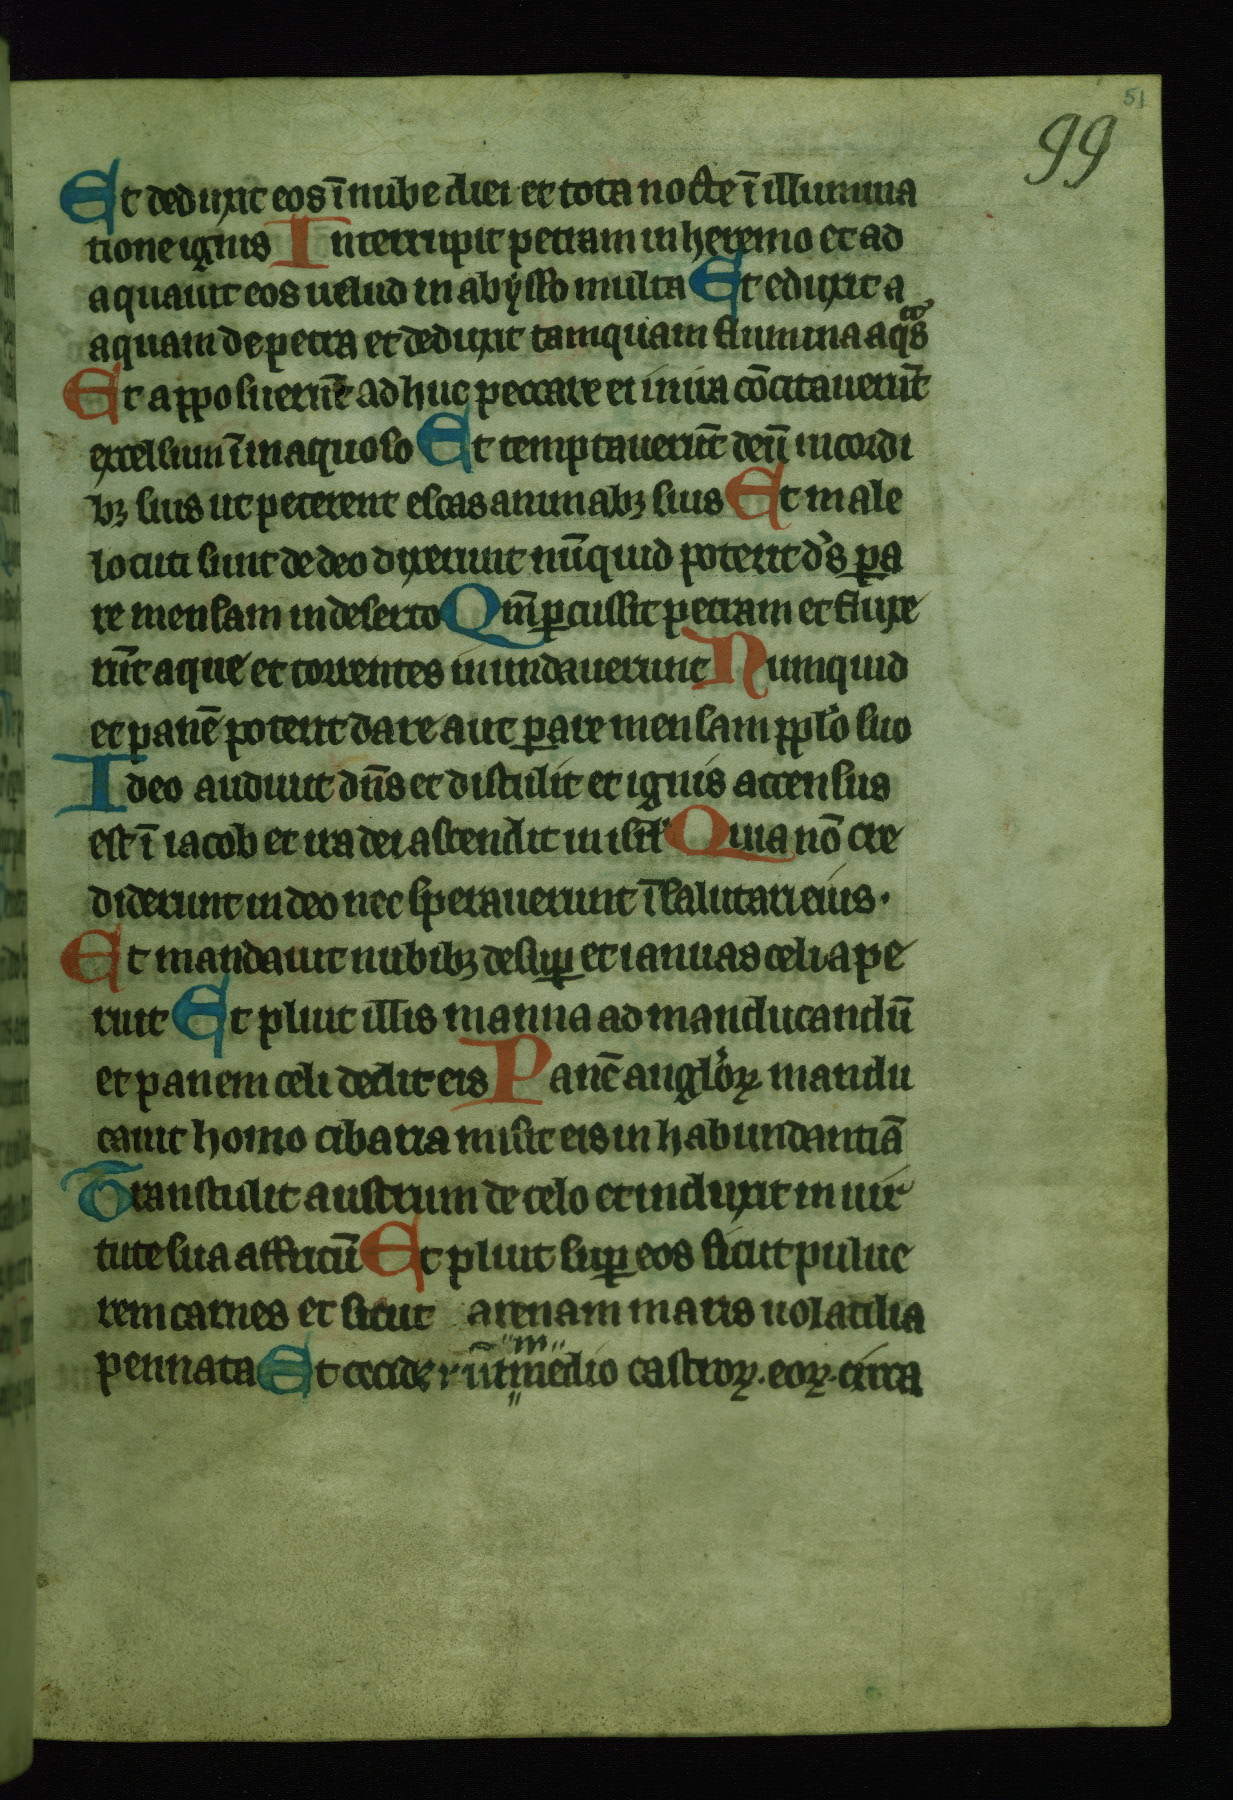 51
99
Et deduxit eos ī nube diei et tota nocte ī illumina
tione ignis Interrupit petram in heremo et ad
aquauit eos uelud in abẏsso multa Et eduxit a
aquam de petra et deduxit tamquam flumina aqᷓs
Et apposuerūt adhuc peccare et in ira cōcitauerūt
excelsum ī inaquoso Et temptauerūt deū in cordi
bꝫ suis ut peterent escas animabꝫ suis Et male
locuti sunt de deo dixerunt nūquid poterit d's ꝑa
re mensam in deserto Qm̄ ꝑcussit petram et fluxe
rūt aque et torrentes inundauerunt Numquid
et panē poterit dare aut ꝑare mensam pplo suo
Ideo audiuit dn̄s et distulit et ignis accensus
est ī iacob et ira dei ascendit in isrl' Quia nō cre
diderunt in deo nec sperauerunt ī salutari eius.
Et mandauit nubibꝫ desuꝑ et ianuas celi ape
ruit Et pluit illis manna ad manducandū
et panem celi dedit eis Panē anglo'ꝝ mandu
cauit homo cibaria misit eis in habundantiā
Transtulit austrum de celo et induxit in uir
tute sua affricū Et pluit suꝑ eos sicut pulue
rem carnes et sicut arenam maris uolatilia
pennata Et cecider̄ūt "in" medio castroꝝ. eoꝝ. circa